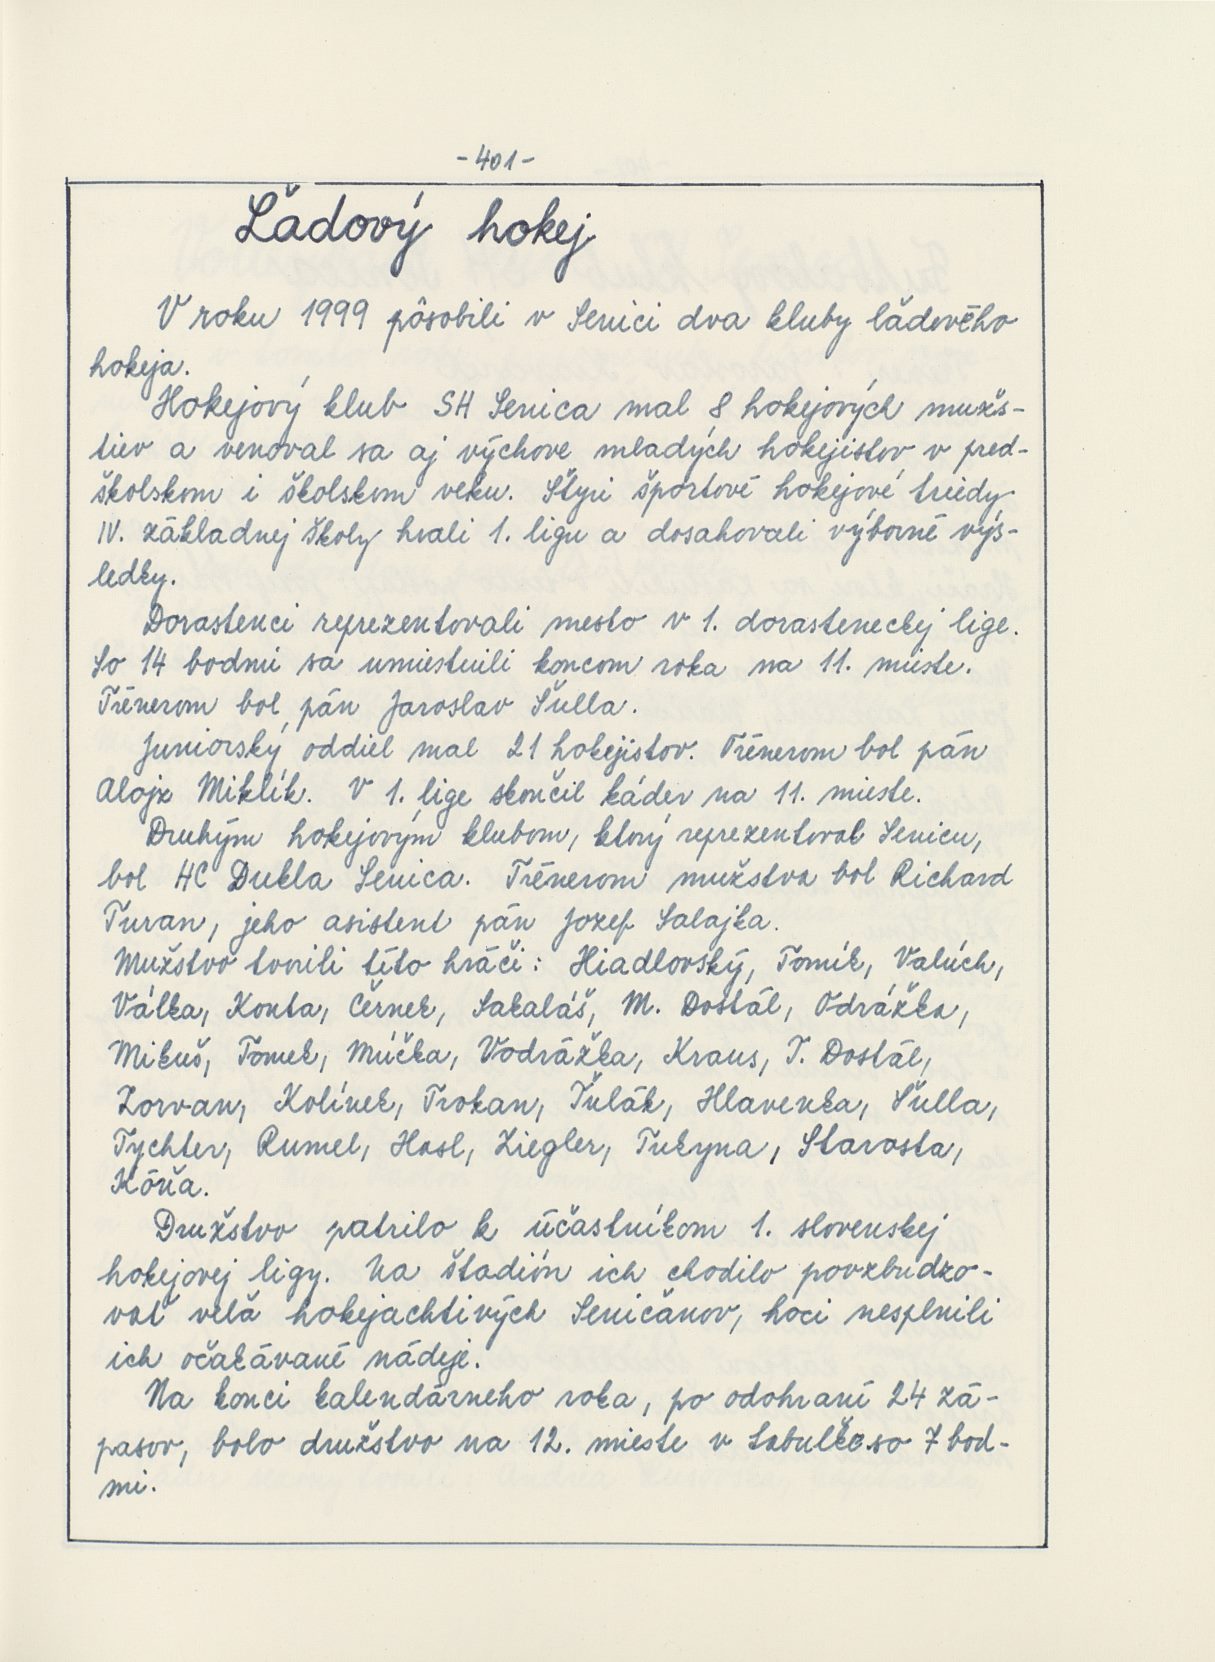 -401-
Ľadový hokej
V roku 1999 pôsobili v Senici dva kluby ľadového
hokeja.
Hokejový klub SH Senica mal 8 hokejových mužs-
tiev a venoval sa aj výchove mladých hokejistov v pred-
školskom i školskom veku. Štyri športové hokejové triedy
IV. základnej školy hrali 1. ligu a dosahovali výborné výs-
ledky.
Dorastenci reprezentovali mesto v 1. dorasteneckej lige.
So 14 bodmi sa umiestnili koncom roka na 11. mieste.
Trénerom bol pán Jaroslav Šulla.
Juniorský oddiel mal 21 hokejistov. Trénerom bol pán
Alojz Miklík. V 1. lige skončil káder na 11. mieste.
Druhým hokejovým klubom, ktorý reprezentoval Senicu,
bol HC Dukla Senica. Trénerom mužstva bol Richard
Turan, jeho asistent pán Jozef Salajka.
Mužstvo tvorili títo hráči: Hiadlovský, Tomík, Valúch,
Válka, Konta, Černek, Sakaláš, M. Dostál, Odrážka,
Mikuš, Tomek, Múčka, Vodrážka, Kraus, T. Dostál,
Zorvan, Kolínek, Trokan, Ťulák, Hlavenka, Šulla,
Tychter, Rumel, Hasl, Ziegler, Tukyna, Starosta,
Kóňa.
Družstvo patrilo k účastníkom 1. slovenskej
hokejovej ligy. Na štadión ich chodilo povzbudzo-
vať veľa hokejachtivých Seničanov, hoci nesplnili
ich očakávané nádeje.
Na konci kalendárneho roka, po odohraní 24 zá-
pasov, bolo družstvo na 12. mieste v tabuľke so 7 bod-
mi.